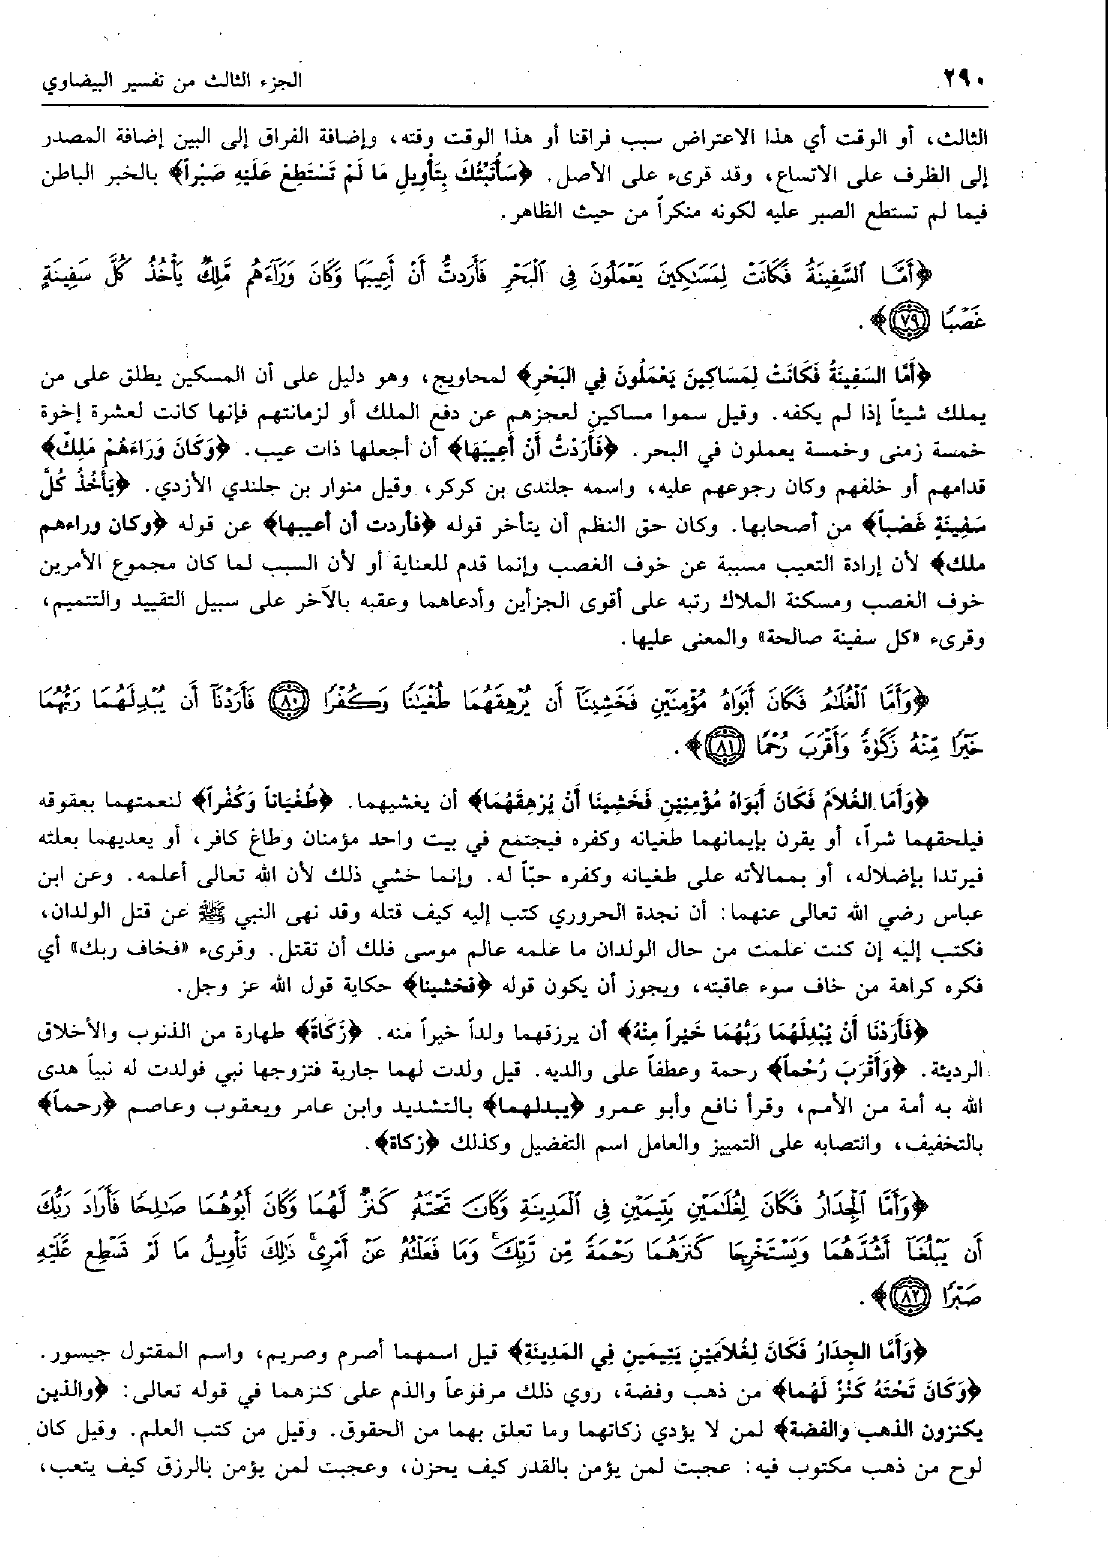 ٢٩٠ الجزء الثالث من تفسير البيضاوي
الثالث، أو الوقت أي هذا الاعتراض سبب فراقنا أو هذا الوقت وقته، وإضافة الفراق إلى البين إضافة المصدر
إلى الظرف على الاتساع، وقد قرىء على الأصل. ﴿سَأُنَبِّئُكَ بِتَأْوِيلِ مَا لَمْ تَسْتَطِعْ عَلَيْهِ صَبْراً﴾ بالخبر الباطن
فيما لم تستطع الصبر عليه لكونه منكراً من حيث الظاهر.
﴿أَمَّا ٱلسَّفِينَةُ فَكَانَتْ لِمَسَٰكِينَ يَعْمَلُونَ فِى ٱلْبَحْرِ فَأَرَدتُّ أَنْ أَعِيبَهَا وَكَانَ وَرَآءَهُم مَّلِكٌ يَأْخُذُ كُلَّ سَفِينَةٍ
غَصْبًا ٧٩﴾.
﴿أَمَّا السَّفِينَةُ فَكَانَتْ لِمَسَاكِينَ يَعْمَلُونَ فِي البَحْرِ﴾ لمحاويج، وهو دليل على أن المسكين يطلق على من
يملك شيئاً إذا لم يكفه. وقيل سموا مساكين لعجزهم عن دفع الملك أو لزمانتهم فإنها كانت لعشرة إخوة
خمسة زمنى وخمسة يعملون في البحر. ﴿فَأَرَدْتُ أَنْ أَعِيبَهَا﴾ أن أجعلها ذات عيب. ﴿وَكَانَ وَرَاءَهُمْ مَلِكٌ﴾
قدامهم أو خلفهم وكان رجوعهم عليه، واسمه جلندى بن كركر، وقيل منوار بن جلندي الأزدي. ﴿يَأْخُذُ كُلَّ
سَفِينَةٍ غَصْباً﴾ من أصحابها. وكان حق النظم أن يتأخر قوله ﴿فأردت أن أعيبها﴾ عن قوله ﴿وكان وراءهم
ملك﴾ لأن إرادة التعيب مسببة عن خوف الغصب وإنما قدم للعناية أو لأن السبب لما كان مجموع الأمرين
خوف الغصب ومسكنة الملاك رتبه على أقوى الجزأين وأدعاهما وعقبه بالآخر على سبيل التقييد والتتميم،
وقرىء «كل سفينة صالحة» والمعنى عليها.
﴿وَأَمَّا ٱلْغُلَٰمُ فَكَانَ أَبَوَاهُ مُؤْمِنَيْنِ فَخَشِينَآ أَن يُرْهِقَهُمَا طُغْيَٰنًا وَكُفْرًا ٨٠ فَأَرَدْنَآ أَن يُبْدِلَهُمَا رَبُّهُمَا
خَيْرًا مِّنْهُ زَكَوٰةً وَأَقْرَبَ رُحْمًا ٨١﴾.
﴿وَأَمَّا الغُلاَمُ فَكَانَ أَبَوَاهُ مُؤْمِنِيْنِ فَخَشِينَا أَنْ يُرْهِقَهُمَا﴾ أن يغشيهما. ﴿طُغْيَاناً وَكُفْراً﴾ لنعمتهما بعقوقه
فيلحقهما شراً، أو يقرن بإيمانهما طغيانه وكفره فيجتمع في بيت واحد مؤمنان وطاغ كافر، أو يعديهما بعلته
فيرتدا بإضلاله، أو بممالأته على طغيانه وكفره حبّاً له. وإنما خشي ذلك لأن الله تعالى أعلمه. وعن ابن
عباس رضي الله تعالى عنهما: أن نجدة الحروري كتب إليه كيف قتله وقد نهى النبي ﷺ عن قتل الولدان،
فكتب إليه إن كنت علمت من حال الولدان ما علمه عالم موسى فلك أن تقتل. وقرىء «فخاف ربك» أي
فكره كراهة من خاف سوء عاقبته، ويجوز أن يكون قوله ﴿فخشينا﴾ حكاية قول الله عز وجل.
﴿فَأَرَدْنَا أَنْ يُبْدِلَهُمَا رَبُّهُمَا خَيْراً مِنْهُ﴾ أن يرزقهما ولداً خيراً منه. ﴿زَكَاةً﴾ طهارة من الذنوب والأخلاق
الرديئة. ﴿وَأَقْرَبَ رُحْماً﴾ رحمة وعطفاً على والديه. قيل ولدت لهما جارية فتزوجها نبي فولدت له نبياً هدى
الله به أمة من الأمم، وقرأ نافع وأبو عمرو ﴿يبدلهما﴾ بالتشديد وابن عامر ويعقوب وعاصم ﴿رحماً﴾
بالتخفيف، وانتصابه على التمييز والعامل اسم التفضيل وكذلك ﴿زكاة﴾.
﴿وَأَمَّا ٱلْجِدَارُ فَكَانَ لِغُلَٰمَيْنِ يَتِيمَيْنِ فِى ٱلْمَدِينَةِ وَكَانَ تَحْتَهُۥ كَنزٌ لَّهُمَا وَكَانَ أَبُوهُمَا صَٰلِحًا فَأَرَادَ رَبُّكَ
أَن يَبْلُغَآ أَشُدَّهُمَا وَيَسْتَخْرِجَا كَنزَهُمَا رَحْمَةً مِّن رَّبِّكَ ۚ وَمَا فَعَلْتُهُۥ عَنْ أَمْرِى ۚ ذَٰلِكَ تَأْوِيلُ مَا لَمْ تَسْطِع عَّلَيْهِ
صَبْرًا ٨٢﴾.
﴿وَأَمَّا الجِدَارُ فَكَانَ لِغُلاَمَيْنِ يَتِيمَينِ فِي المَدِينَةِ﴾ قيل اسمهما أصرم وصريم، واسم المقتول جيسور.
﴿وَكَانَ تَحْتَهُ كَنْزٌ لَهُما﴾ من ذهب وفضة، روي ذلك مرفوعاً والذم على كنزهما في قوله تعالى: ﴿والذين
يكنزون الذهب والفضة﴾ لمن لا يؤدي زكاتهما وما تعلق بهما من الحقوق. وقيل من كتب العلم. وقيل كان
لوح من ذهب مكتوب فيه: عجبت لمن يؤمن بالقدر كيف يحزن، وعجبت لمن يؤمن بالرزق كيف يتعب،